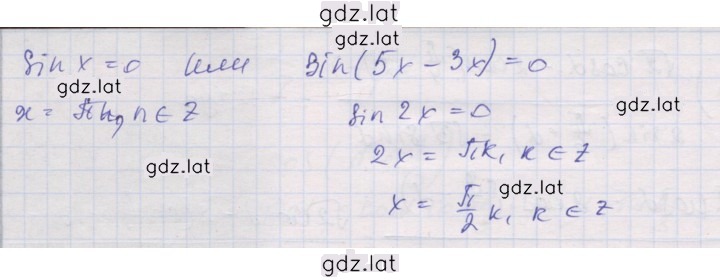 gdz.lat
gdz.lat
sin x = 0 или sin(5x - 3x) = 0
gdz.lat
x = πn, n ∈ Z
sin 2x = 0
gdz.lat
2x = πk, k ∈ Z
gdz.lat
gdz.lat
x = π/2 k, k ∈ Z
gdz.lat